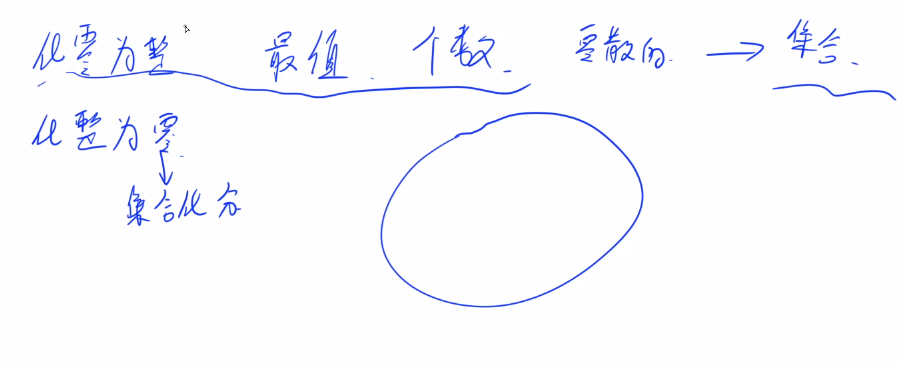 化零为整 最值、个数、 零散的、 → 集合、
化整为零、
↓
集合化分